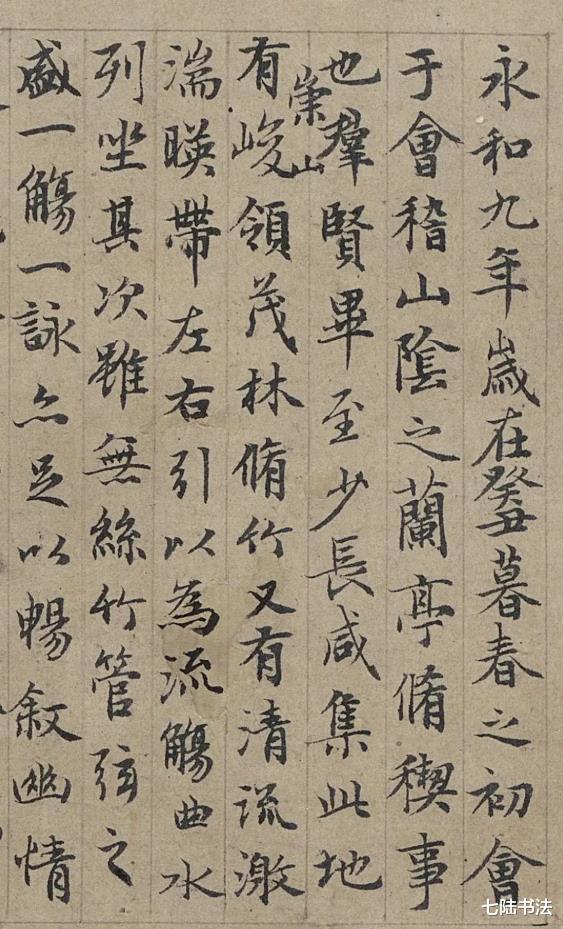 永和九年歳在癸丑暮春之初會
于會稽山陰之蘭亭脩稧事
也羣賢畢至少長咸集此地
有崇山峻領茂林脩竹又有清流激
湍暎帶左右引以為流觴曲水
列坐其次雖無絲竹管弦之
盛一觴一詠亦足以暢叙幽情
七陆书法